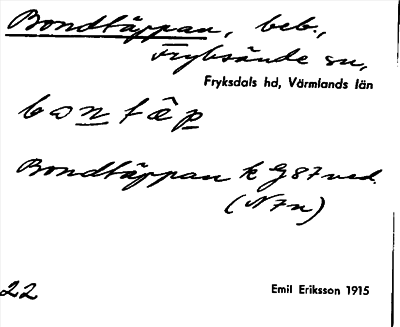 Bondtäppan, beb.,
Fryksände sn,
Fryksdals hd, Värmlands län
bontäp
Bondtäppan k G87
(N7n)
22
Emil Eriksson 1915